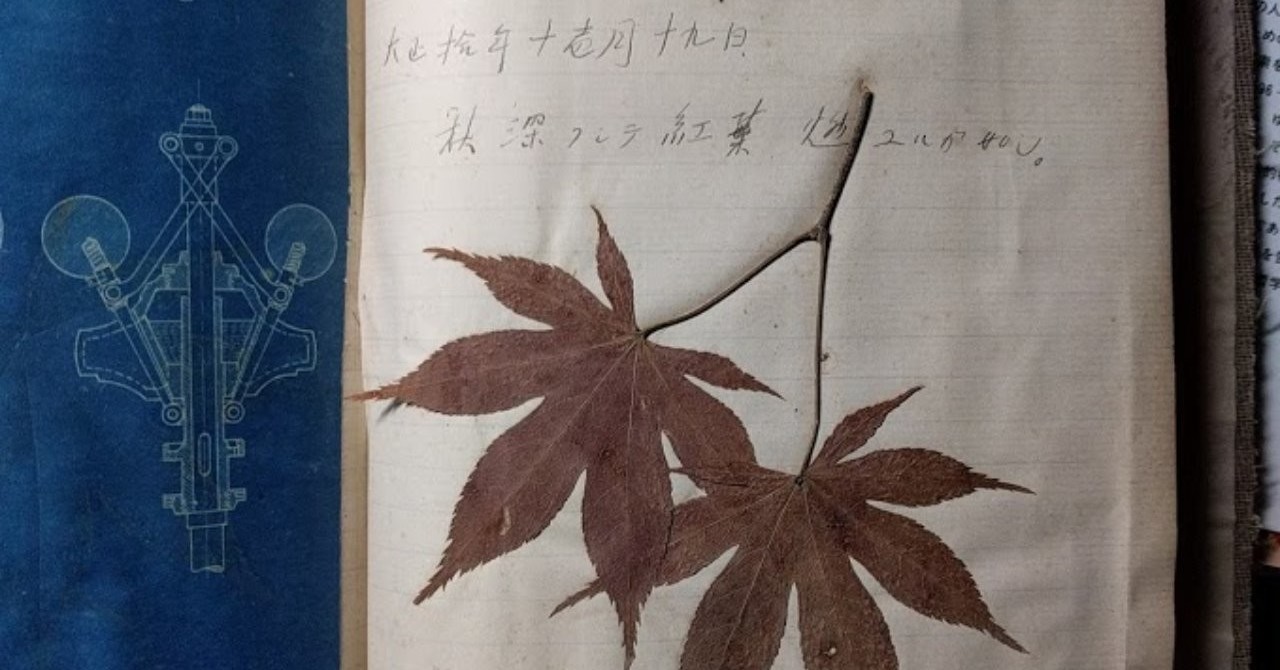 大正拾年十壱月十九日
秋深フシテ紅葉燃ユルガ如し。